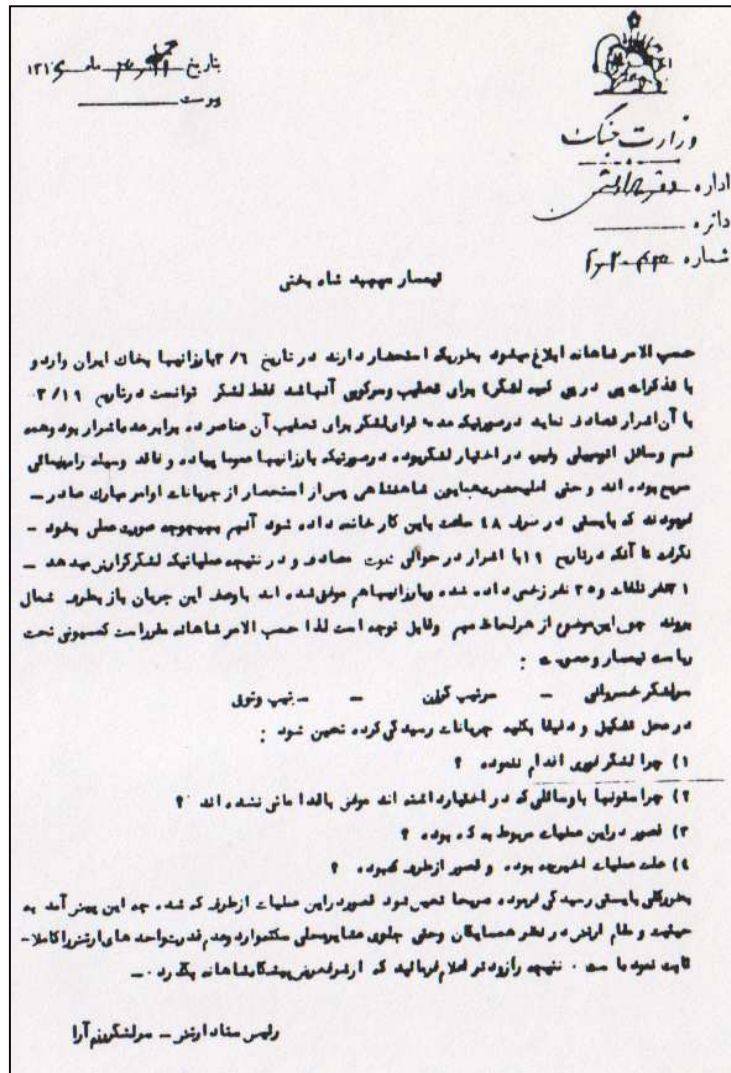 بتاریخ ماه ۱۳۲
پیوست
وزارت جنگ
اداره
دائره
شماره
تیمسار سپهبد شاه بختی
حسب الامر شاهانه ابلاغ میشود بطوریکه استحضار دارند در تاریخ ۳/۶ بارزانیها بخاک ایران وارد و
با تذکرات پی در پی که به لشگر ۴ برای تعقیب و سرکوبی آنها شد فقط لشگر توانست در تاریخ ۳/۱۹
با آن اشرار تصادف نماید در صورتیکه عده قوای لشگر برای تعقیب آن عناصر ده برابر عده اشرار بود و همه
قسم وسائل اتومبیلی و غیره در اختیار لشگر بوده در صورتیکه بارزانیها عموما پیاده و فاقد وسیله راهپیمائی
سریع بوده اند و حتی اعلیحضرت همایون شاهنشاهی پس از استحضار از جریانات اوامر مبارک صادر -
فرمودند که بایستی در ظرف ۴۸ ساعت باین کار خاتمه داده شود آنهم بهیچوجه صورت عملی بخود -
نگرفت تا آنکه در تاریخ ۱۹ با اشرار در حوالی تصادف و در نتیجه عملیاتیکه لشگر گزارش میدهد -
نفر تلفات و ۳۵ نفر زخمی داده شده و بارزانیها هم موفق شده اند باوصف این جریان باز بطرف شمال
بروند چون این موضوع از هر لحاظ مهم و قابل توجه است لذا حسب الامر شاهانه مقرر است کمیسیونی تحت
ریاست تیمسار و عضویت :
سرلشگر خسروانی - سرتیپ گرزن - - وثوق
در محل تشکیل و دقیقا بکلیه جریانات رسیدگی کرده تعیین شود :
۱) چرا لشگر فوری اقدام ننموده ؟
۲) چرا ستونها با وسائلی که در اختیار داشته اند موفق باقداماتی نشده اند ؟
۳) قصور در این عملیات مربوط به که بوده ؟
۴) علت عملیات اخیر چه بوده و قصور از طرف که بوده ؟
بطور کلی بایستی رسیدگی فرموده صریحا تعیین شود قصور در این عملیات از طرف که شده چه این پیش آمد به
حیثیت و مقام ارتش در نظر همسایگان و حتی جلوی عشایر محلی سکته وارد و عدم قدرت واحد های ارتش را کاملا -
ثابت نموده است . نتیجه را زودتر اعلام فرمائید که از شرفعرض پیشگاه شاهانه بگذرد . -
رئیس ستاد ارتش - سرلشگر رزم آرا